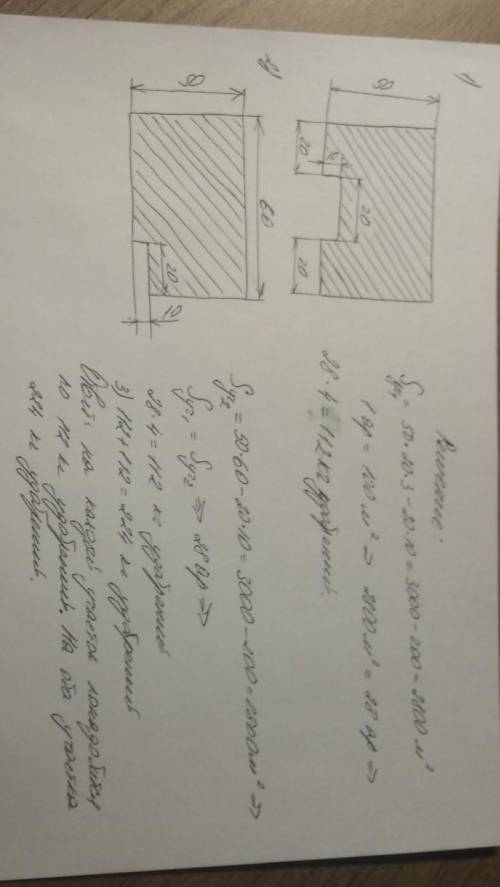 Решение:
1)
50
20
10
20
20
Sуч₁ = 50·20·3-20·10=3000-200=2800 м²
1 ар = 100 м² ⇒ 2800 м² = 28 ар ⇒
28·4=112 кг удобрений.
2)
50
60
20
10
Sуч₂ = 50·60-20·10=3000-200=2800 м² ⇒
Sуч₁ = Sуч₂ ⇒ 28 ар ⇒
28·4=112 кг удобрений
3) 112+112=224 кг удобрений
Ответ: на каждый участок понадобится
по 112 кг удобрений. На оба участка
224 кг удобрений.